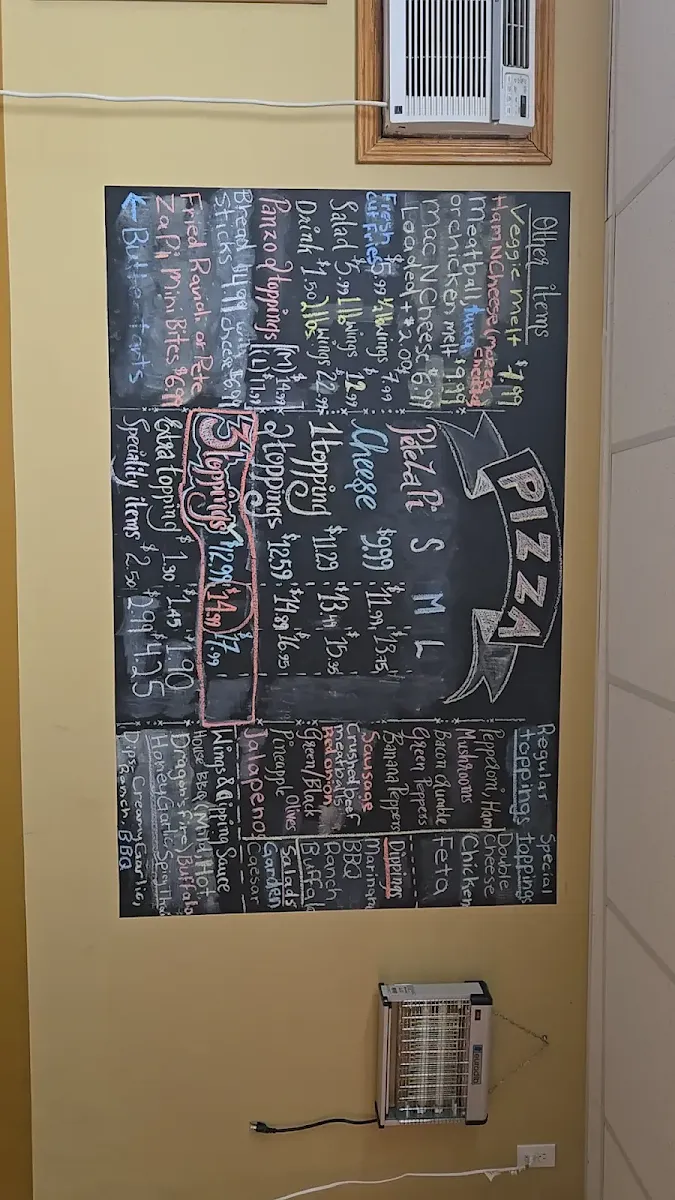 Other items
Veggie Melt $7.99
Ham N Cheese
Meatball, tuna
or chicken melt $9.99
Mac N Cheese 6.99
Loaded + $2.00
Fresh cut Fries $5.99 1/2lb wings $7.99
Salad $5.99 1lb wings 12.99
Drink $1.50 2lbs wings 22.99
Panzo 2 toppings (M) $14.99
(L)
Bread sticks $4.99 with cheese
Fried Ravioli or Pete
ZaPi Mini Bites $6.99
← Butter tarts
PIZZA
PeteZaPi S M L
Cheese $9.99 $11.94 $13.75
1 topping $11.29 $13.41 $15.35
2 toppings $12.59 $14.89 $16.95
3 toppings $12.99 $14.99 $17.99
Extra topping $1.30 $1.45 $1.90
Speciality items $2.50 2.99 4.25
Regular toppings
Pepperoni, Ham
Mushrooms
Bacon Crumble
Green Peppers
Banana Peppers
Sausage
Crushed beef
meatballs
Red onion
Green/Black Olives
Pineapple
Jalapeno
Special toppings
Double Cheese
Chicken
Feta
Dippings
Marinara
BBQ
Ranch
Buffalo
Salads
Garden
Caesar
Wings & dipping Sauce
House BBQ (Mild, Hot
Dragon's fire) Buffalo
Honey Garlic, Spicy
Dips Creamy Garlic,
Ranch, BBQ